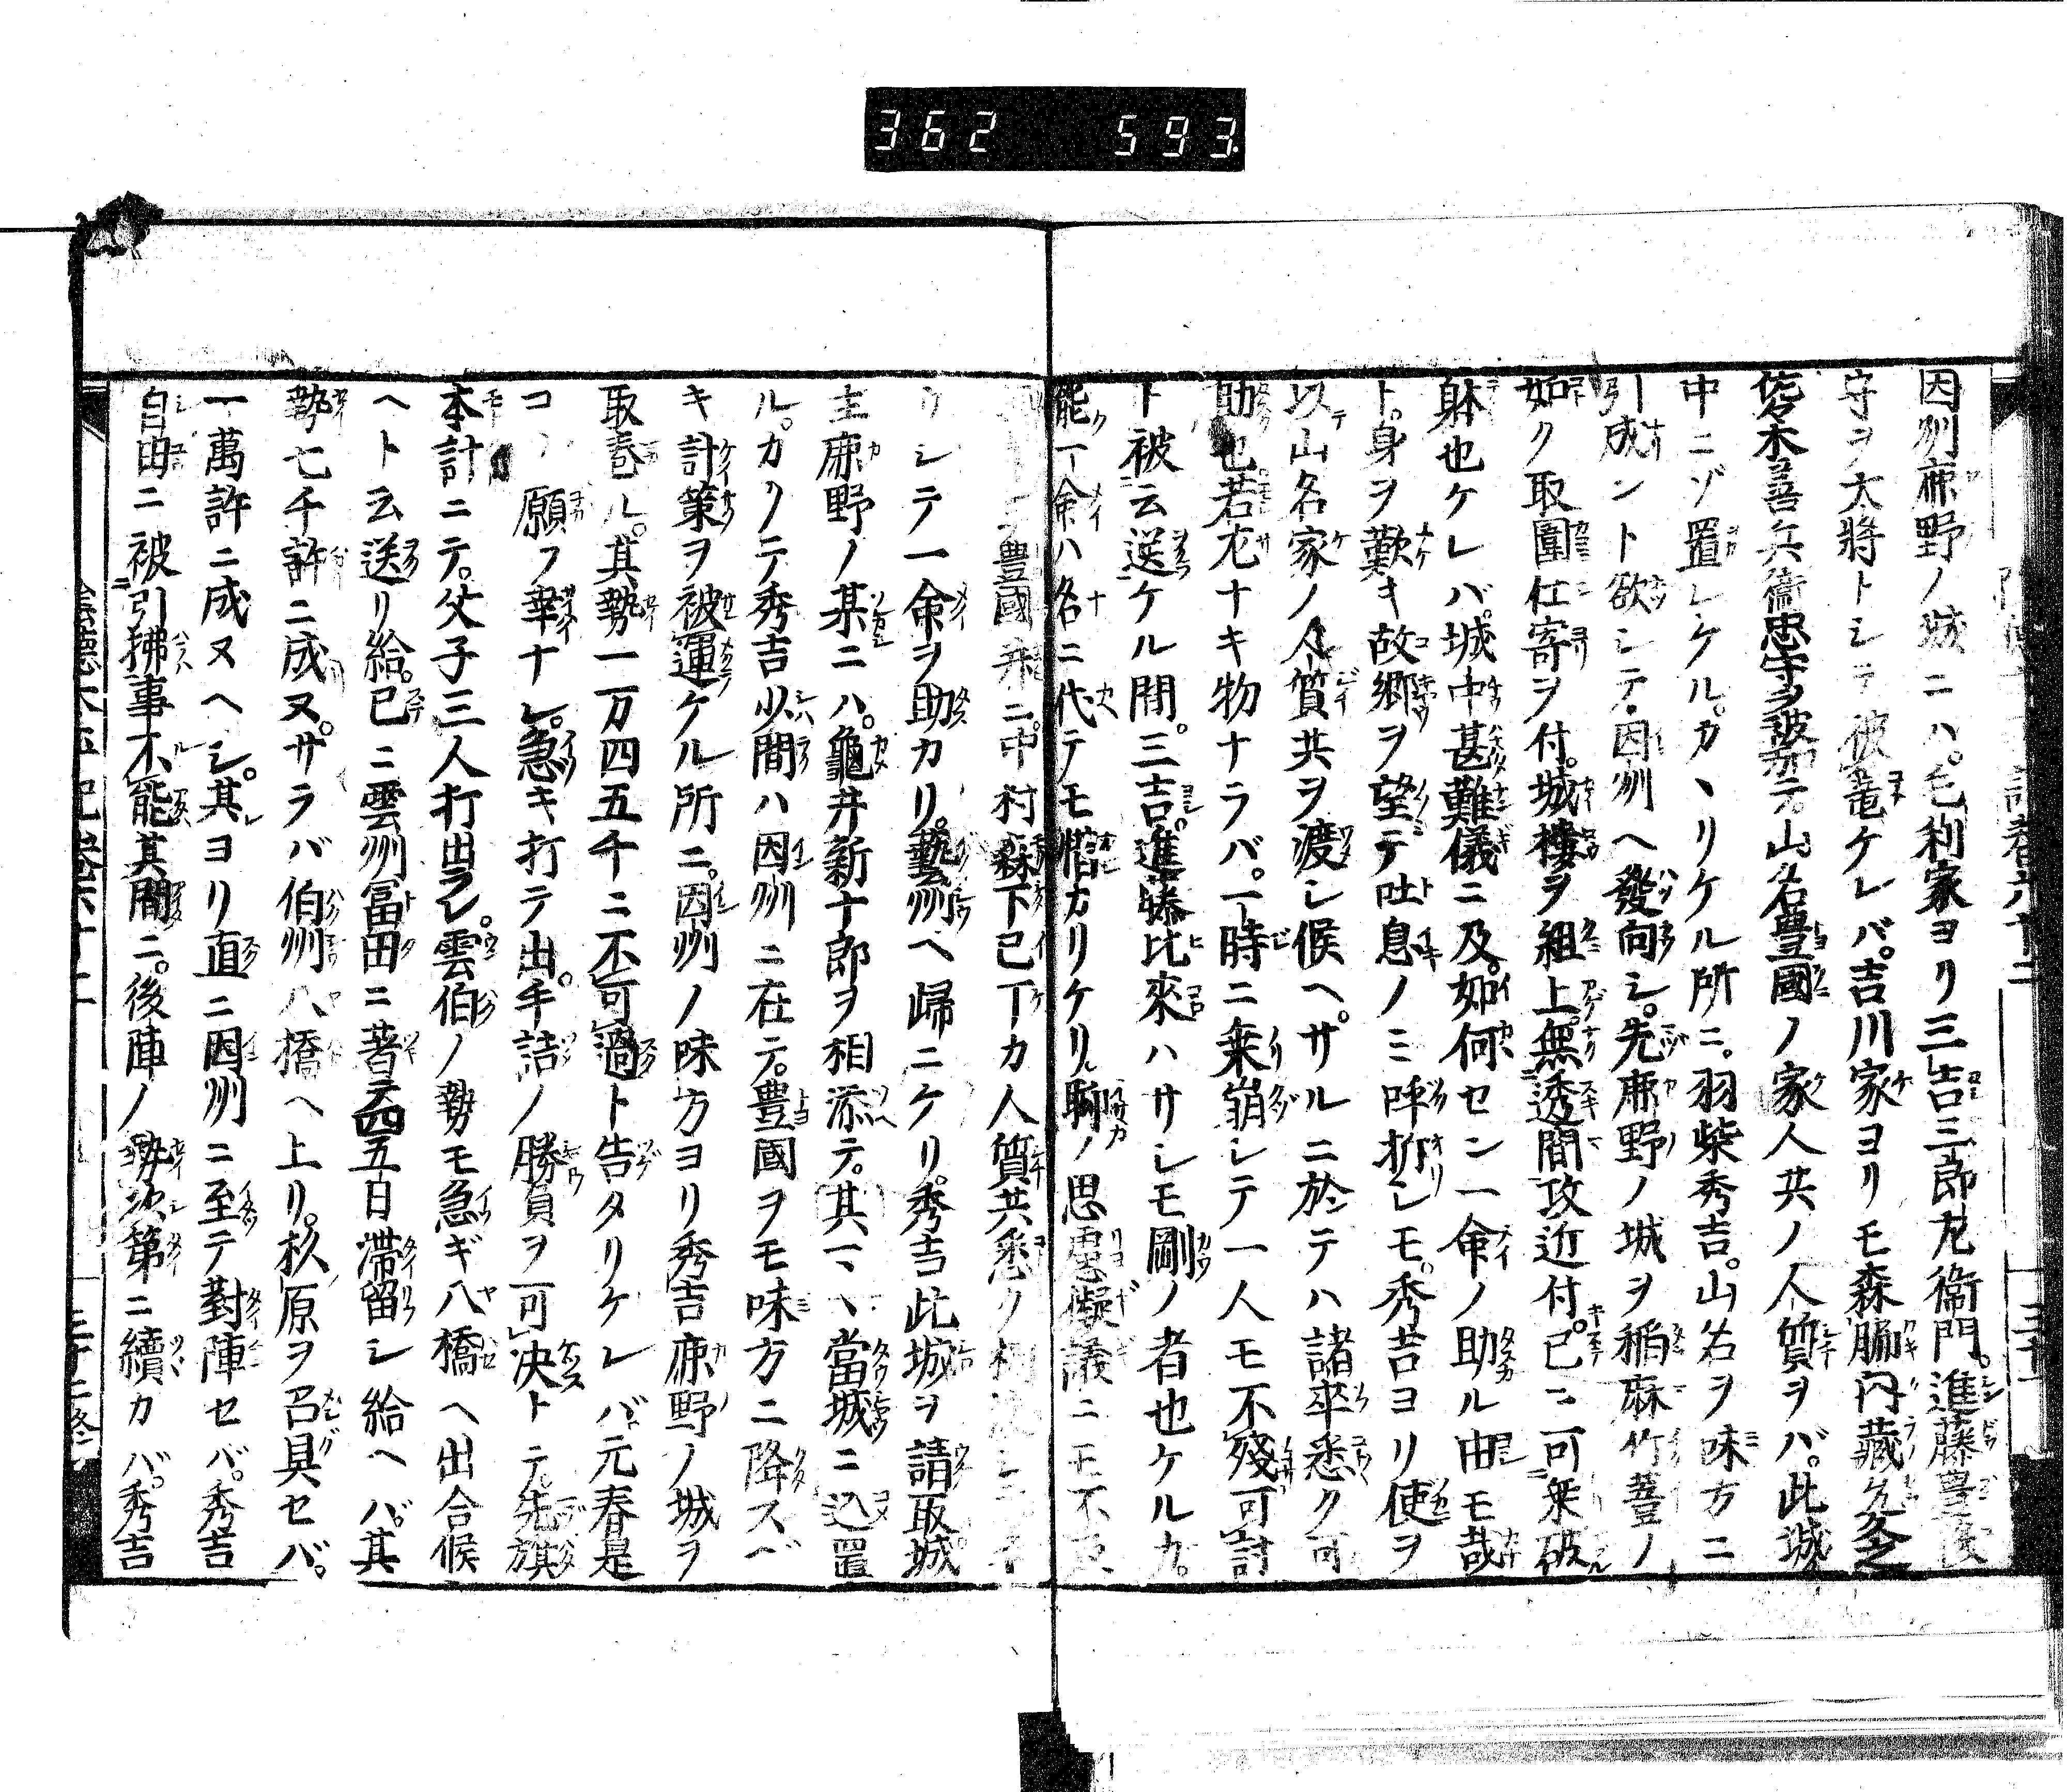 362 593
因州廉野ノ城ニハ。毛利家ヨリ三吉三郎左衞門。進藤豊後
守ヲ大將トシテ被篭ケレバ。吉川家ヨリモ森脇内藏
佐々木善兵衞忠 山名豊國ノ家人共ノ人質ヲバ。此城
中ニゾ置レケル。カヽリケル所ニ。羽柴秀吉。山名ヲ味方ニ
引成ント欲シテ。因州ヘ發向シ。先廉野ノ城ヲ稲麻竹葦ノ
如ク取圍仕寄ヲ付。城樓ヲ組上。無透間攻近付。已ニ可乗破
躰也ケレバ。城中甚難儀ニ及。如何セン一命ノ助ル由モ哉
ト。身ヲ歎キ故郷ヲ望テ吐息ノミ 。秀吉ヨリ使ヲ
以山名家ノ人質共ヲ渡シ候ヘ。サルニ於テハ諸卒悉ク可
助也。若尤ナキ物ナラバ。一時ニ乗崩シテ一人モ不殘可討
ト被云送ケル間。三吉。進藤比來ハサシモ剛ノ者也ケルカ。
能一命ハ名ニ代テモ惜カリケリ。聊ノ思慮 議ニモ不
豊國 ニ。中村森下已下カ人質共悉ク
シテ一命ヲ助カリ。藝州ヘ歸ニケリ。秀吉此城ヲ請取城
主廉野ノ某ニハ。龜井新十郎ヲ相添テ。其 當城ニ込置
ル。カクテ秀吉少間ハ因州ニ在テ。豊國ヲモ味方ニ降スベ
キ計策ヲ被運ケル所ニ。因州ノ味方ヨリ秀吉廉野ノ城ヲ
取巻ル。其勢一万四五千ニ不可過ト告タリケレバ。元春是
コソ願フ幸ナレ。急キ打テ出。手詰ノ勝負ヲ可決トテ。先旗
本計ニテ。父子三人打出ラレ。雲伯ノ勢モ急ギ八橋ヘ出合候
ヘト云送リ給。已ニ雲州冨田ニ著テ四五日滞留シ給ヘバ。其
勢七千許ニ成ヌ。サラバ伯州八橋ヘ上リ。杉原ヲ召具セバ。
一萬許ニ成ヌヘシ。其ヨリ直ニ因州ニ至テ對陣セバ。秀吉
自由ニ被引拂事不能。其間ニ。後陣ノ勢次第ニ續カバ。秀吉